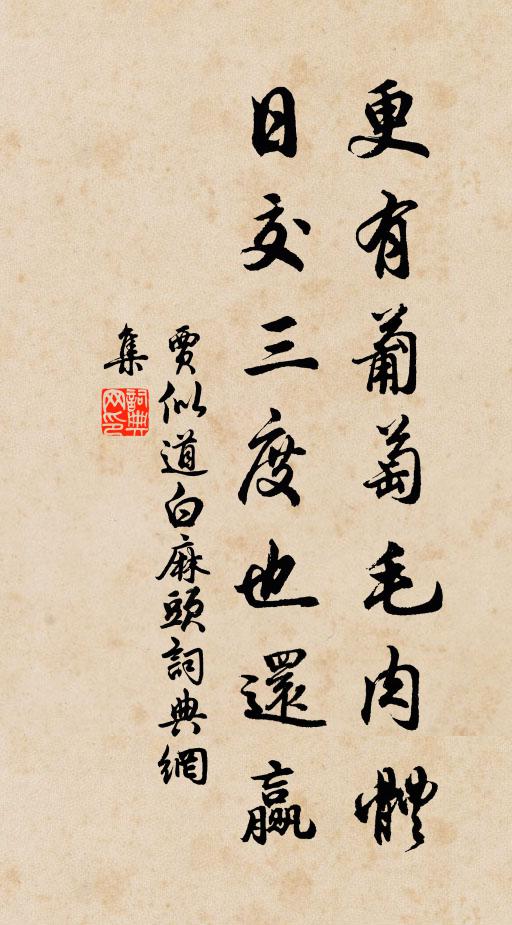 更有葡萄毛肉體
日交三度也還贏
賈似道白麻頭詞典網
集
詞典
网印